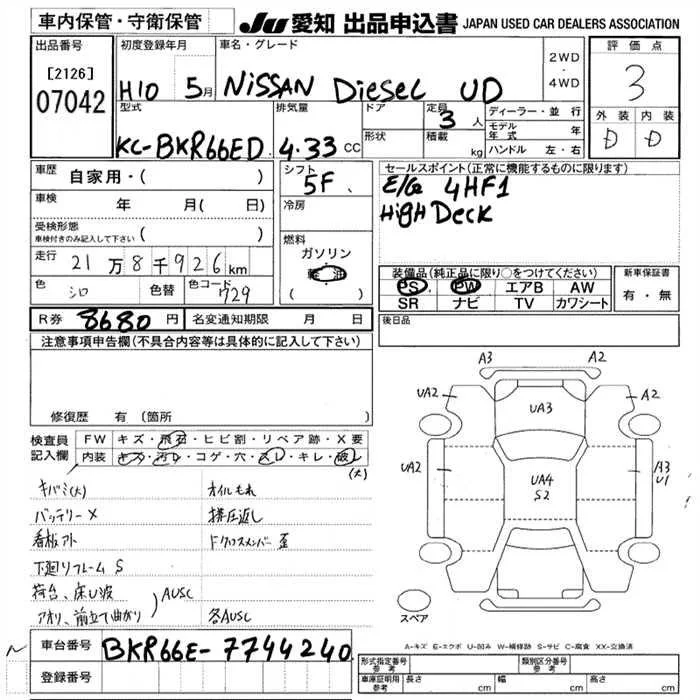 車内保管・守衛保管
JU 愛知 出品申込書 JAPAN USED CAR DEALERS ASSOCIATION
出品番号
[2126]
07042
初度登録年月
H10 5月
車名・グレード
NiSSAN Diesel UD
2WD
・
4WD
評価点
3
外装 内装
D D
型式
KC-BKR66ED
排気量
4.33 CC
ドア
形状
定員
3 人
積載
kg
ディーラー・並行
モデル年式 年
ハンドル 左・右
車歴 自家用・( )
車検 年 月( 日)
受検形態
車検付きのみ記入して下さい ( )
走行 21万8千926km
色 シロ 色替 色コード 729
シフト
5F
冷房
燃料
ガソリン
( )
セールスポイント(正常に機能するものに限ります)
E/G 4HF1
HigH Deck
装備品(純正品に限り○をつけてください)
PS PW エアB AW
SR ナビ TV カワシート
新車保証書
有・無
後日品
R券 8680 円 名変通知期限 月 日
注意事項申告欄(不具合内容等は具体的に記入して下さい)
修復歴 有 (箇所 )
検査員
記入欄
FW キズ・飛石・ヒビ割・リペア跡・X要
内装 キズ・汚レ・コゲ・穴・スレ・キレ・破レ
(大)
キバミ(大) オイルもれ
バッテリーX 排圧返し
看板アト ドクロスメンバー歪
下廻リフレームS
荷台、床凹波
アオリ、前立て曲がり
AUSC
各AUSC
車台番号 BKR66E-7744240
登録番号
A3 A2
UA2 UA3 A2
UA2 UA4 A3
S2 U1
スペア
A-キズ E-エクボ U-凹み W-補修跡 S-サビ C-腐食 XX-交換済
形式指定番号
参考
類別区分番号
参考
車庫証明用
参考
長さ cm 幅 cm 高さ cm